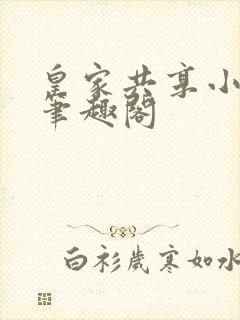 皇家共享小
笔趣阁
白衫岁寒如水